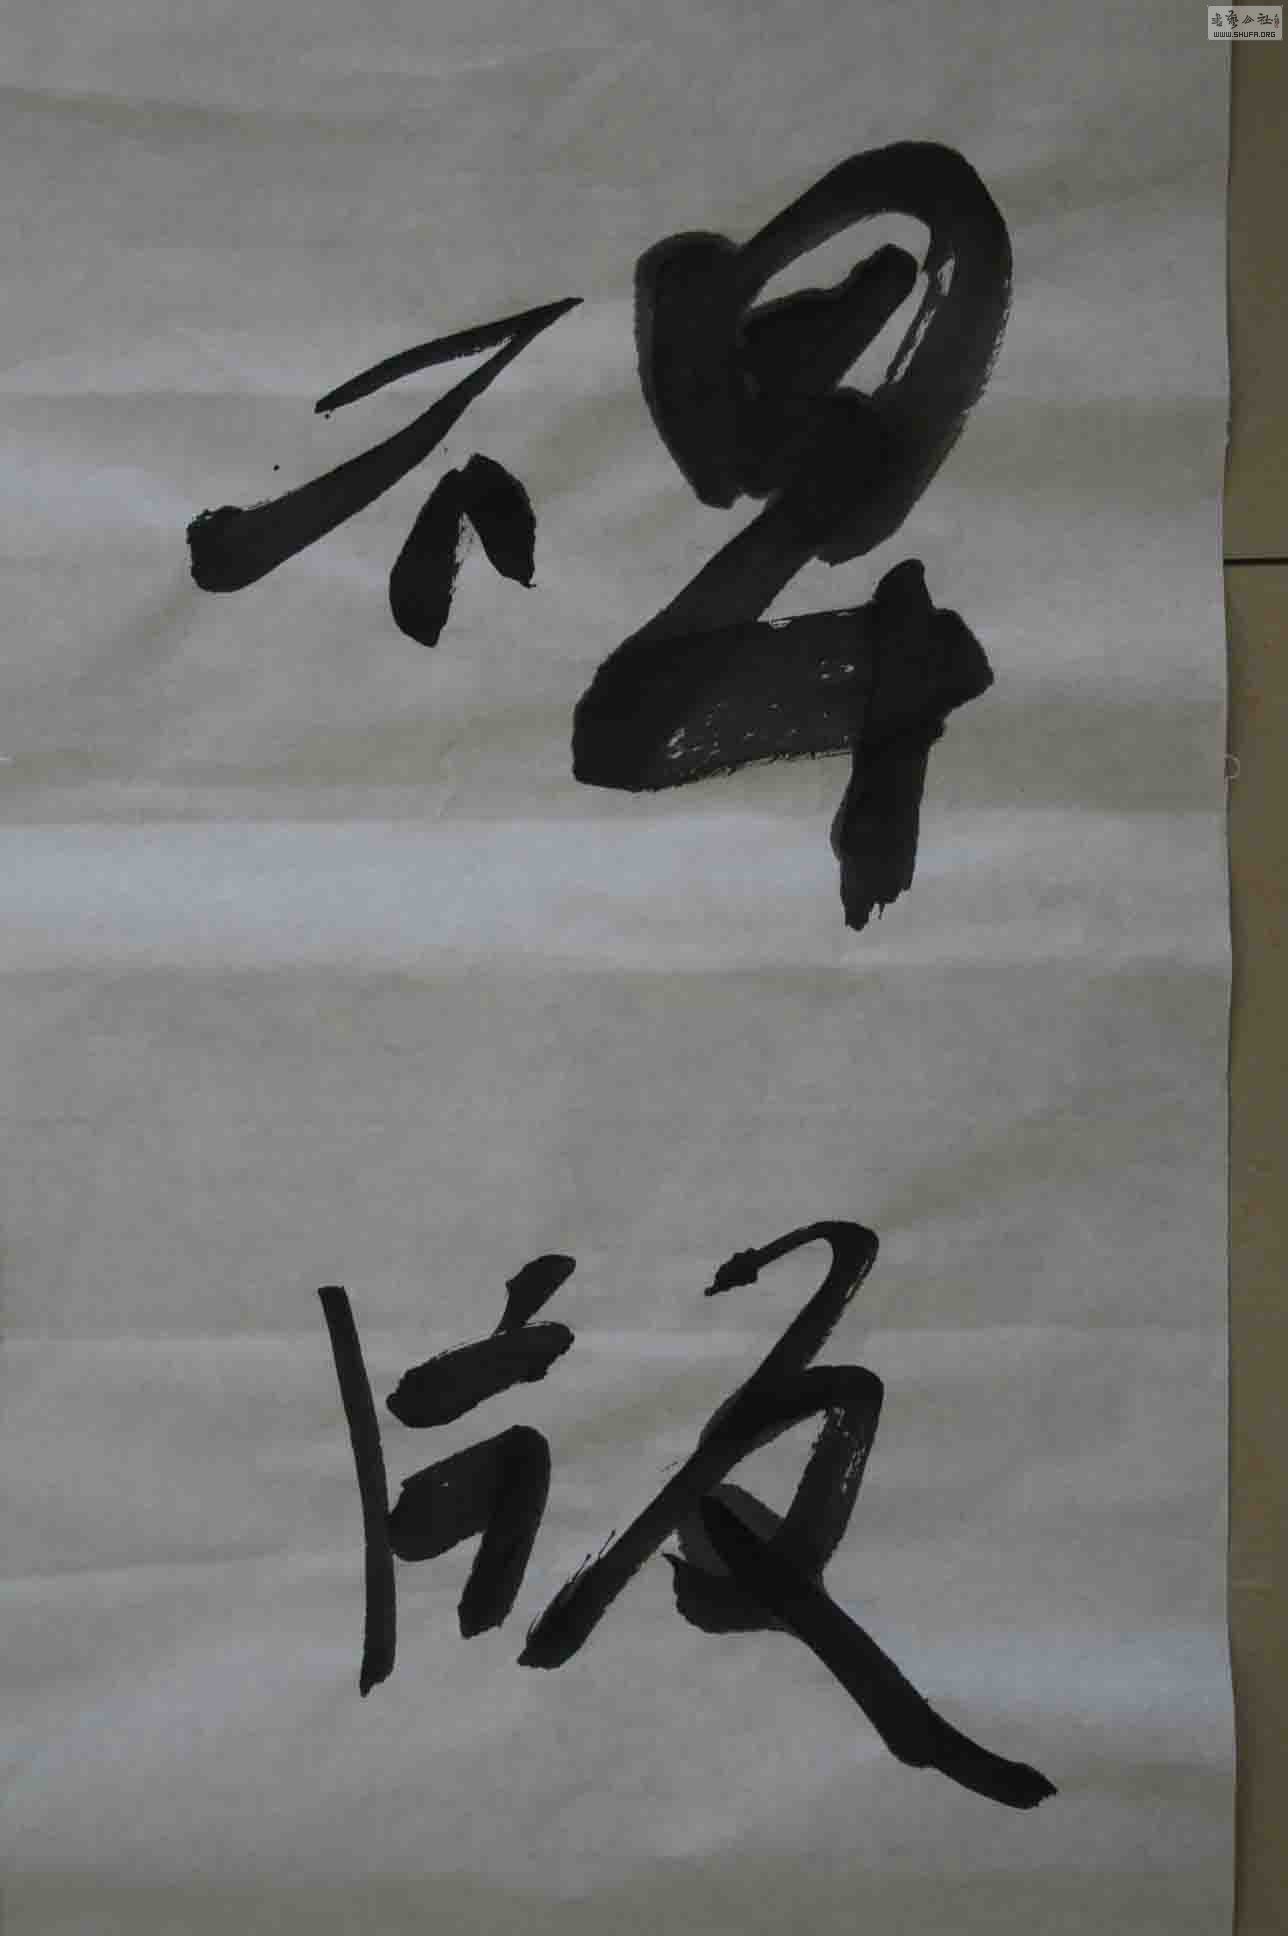 碑
版
书艺公社
WWW.SHUFA.ORG